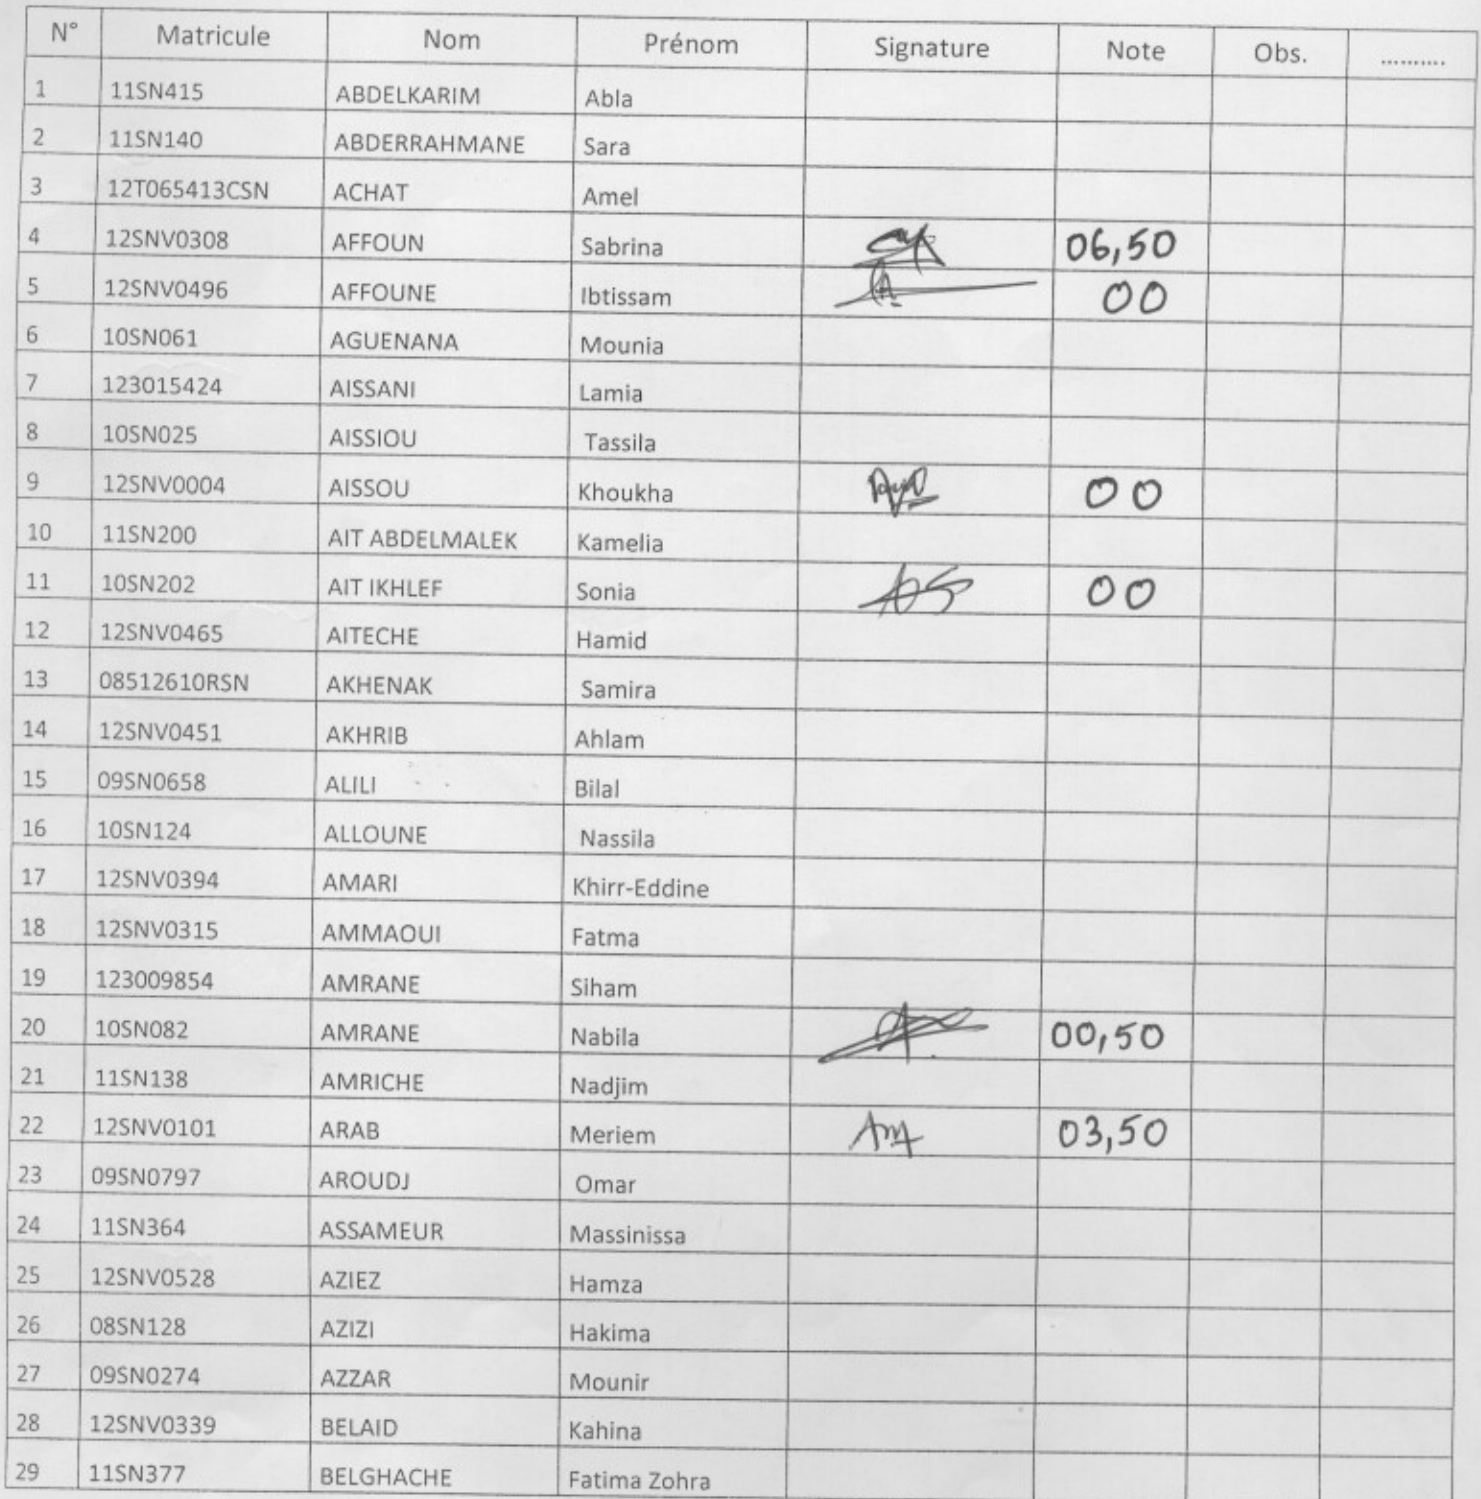 N° Matricule Nom Prénom Signature Note Obs. ..........
1 11SN415 ABDELKARIM Abla
2 11SN140 ABDERRAHMANE Sara
3 12T065413CSN ACHAT Amel
4 12SNV0308 AFFOUN Sabrina 06,50
5 12SNV0496 AFFOUNE Ibtissam 00
6 10SN061 AGUENANA Mounia
7 123015424 AISSANI Lamia
8 10SN025 AISSIOU Tassila
9 12SNV0004 AISSOU Khoukha 00
10 11SN200 AIT ABDELMALEK Kamelia
11 10SN202 AIT IKHLEF Sonia 00
12 12SNV0465 AITECHE Hamid
13 08512610RSN AKHENAK Samira
14 12SNV0451 AKHRIB Ahlam
15 09SN0658 ALILI Bilal
16 10SN124 ALLOUNE Nassila
17 12SNV0394 AMARI Khirr-Eddine
18 12SNV0315 AMMAOUI Fatma
19 123009854 AMRANE Siham
20 10SN082 AMRANE Nabila 00,50
21 11SN138 AMRICHE Nadjim
22 12SNV0101 ARAB Meriem 03,50
23 09SN0797 AROUDJ Omar
24 11SN364 ASSAMEUR Massinissa
25 12SNV0528 AZIEZ Hamza
26 08SN128 AZIZI Hakima
27 09SN0274 AZZAR Mounir
28 12SNV0339 BELAID Kahina
29 11SN377 BELGHACHE Fatima Zohra